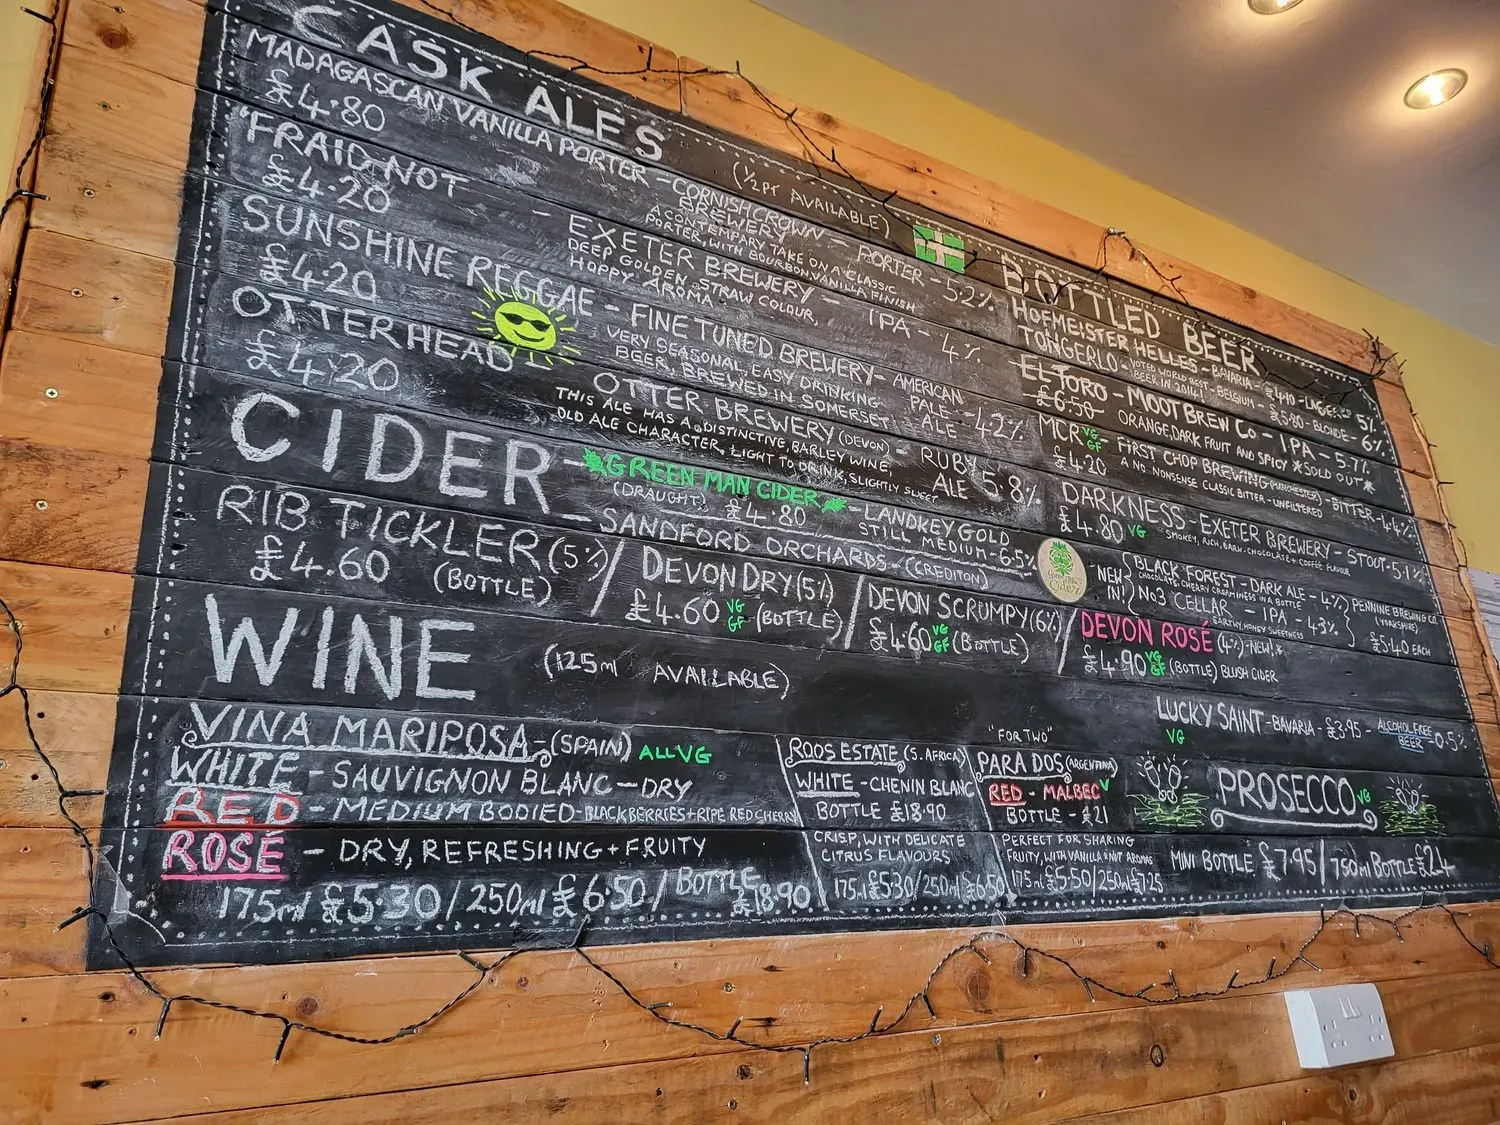 CASK ALES
(½PT AVAILABLE)
MADAGASCAN VANILLA PORTER - CORNISH CROWN BREWERY - PORTER - 5.2%
£4.80
A CONTEMPORARY TAKE ON A CLASSIC
PORTER, WITH BOURBON VANILLA FINISH
'FRAID NOT - EXETER BREWERY - IPA - 4%
£4.20
DEEP GOLDEN, STRAW COLOUR,
HOPPY AROMA
SUNSHINE REGGAE - FINE TUNED BREWERY - AMERICAN PALE ALE - 4.2%
£4.20
VERY SEASONAL, EASY DRINKING
BEER, BREWED IN SOMERSET
OTTERHEAD - OTTER BREWERY (DEVON) - RUBY ALE 5.8%
£4.20
THIS ALE HAS A DISTINCTIVE, BARLEY WINE,
OLD ALE CHARACTER, LIGHT TO DRINK, SLIGHTLY SWEET
CIDER - GREEN MAN CIDER - LANDKEY GOLD
(DRAUGHT) £4.80 STILL MEDIUM - 6.5%
- SANDFORD ORCHARDS - (CREDITON)
RIB TICKLER (5%) / DEVON DRY (5%) / DEVON SCRUMPY (6%) / DEVON ROSÉ (4%) - NEW!*
£4.60 (BOTTLE) £4.60 VG GF (BOTTLE) £4.60 VG GF (BOTTLE) £4.90 VG GF (BOTTLE) BLUSH CIDER
WINE (125ml AVAILABLE)
VINA MARIPOSA - (SPAIN) ALL VG
WHITE - SAUVIGNON BLANC - DRY
RED - MEDIUM BODIED - BLACKBERRIES + RIPE RED CHERRY
ROSÉ - DRY, REFRESHING + FRUITY
175ml £5.30 / 250ml £6.50 / BOTTLE £18.90
ROOS ESTATE (S. AFRICA)
WHITE - CHENIN BLANC
BOTTLE £18.90
CRISP, WITH DELICATE
CITRUS FLAVOURS
175ml £5.30 / 250ml £6.50
"FOR TWO"
PARA DOS (ARGENTINA)
RED - MALBEC V
BOTTLE - £21
PERFECT FOR SHARING
FRUITY, WITH VANILLA + NUT AROMAS
175ml £5.50 / 250ml £7.25
BOTTLED BEER
HOFMEISTER HELLES - BAVARIA - £4.10 - LAGER - 5%
TONGERLO - VOTED WORLD BEST BEER IN 2014! - BELGIUM - £5.80 - BLONDE - 6%
EL TORO - MOOT BREW Co - IPA - 5.7%
£6.50 ORANGE, DARK FRUIT AND SPICY *SOLD OUT*
MCR VG GF - FIRST CHOP BREWING (MANCHESTER) - BITTER - 4.4%
£4.20 A NO NONSENSE CLASSIC BITTER - UNFILTERED
DARKNESS - EXETER BREWERY - STOUT - 5.1%
£4.80 VG SMOKEY, RICH, DARK-CHOCOLATE + COFFEE FLAVOUR
NEW IN! { BLACK FOREST - DARK ALE - 4% } PENNINE BREWING CO. (YORKSHIRE)
CHOCOLATE, CHERRY CREAMINESS IN A BOTTLE
No3 CELLAR - IPA - 4.3% £5.40 EACH
EARTHY, HONEY SWEETNESS
Green Man Cider
LUCKY SAINT - BAVARIA - £3.95 - ALCOHOL FREE BEER - 0.5%
VG
PROSECCO VG
MINI BOTTLE £7.95 / 750ml BOTTLE £24